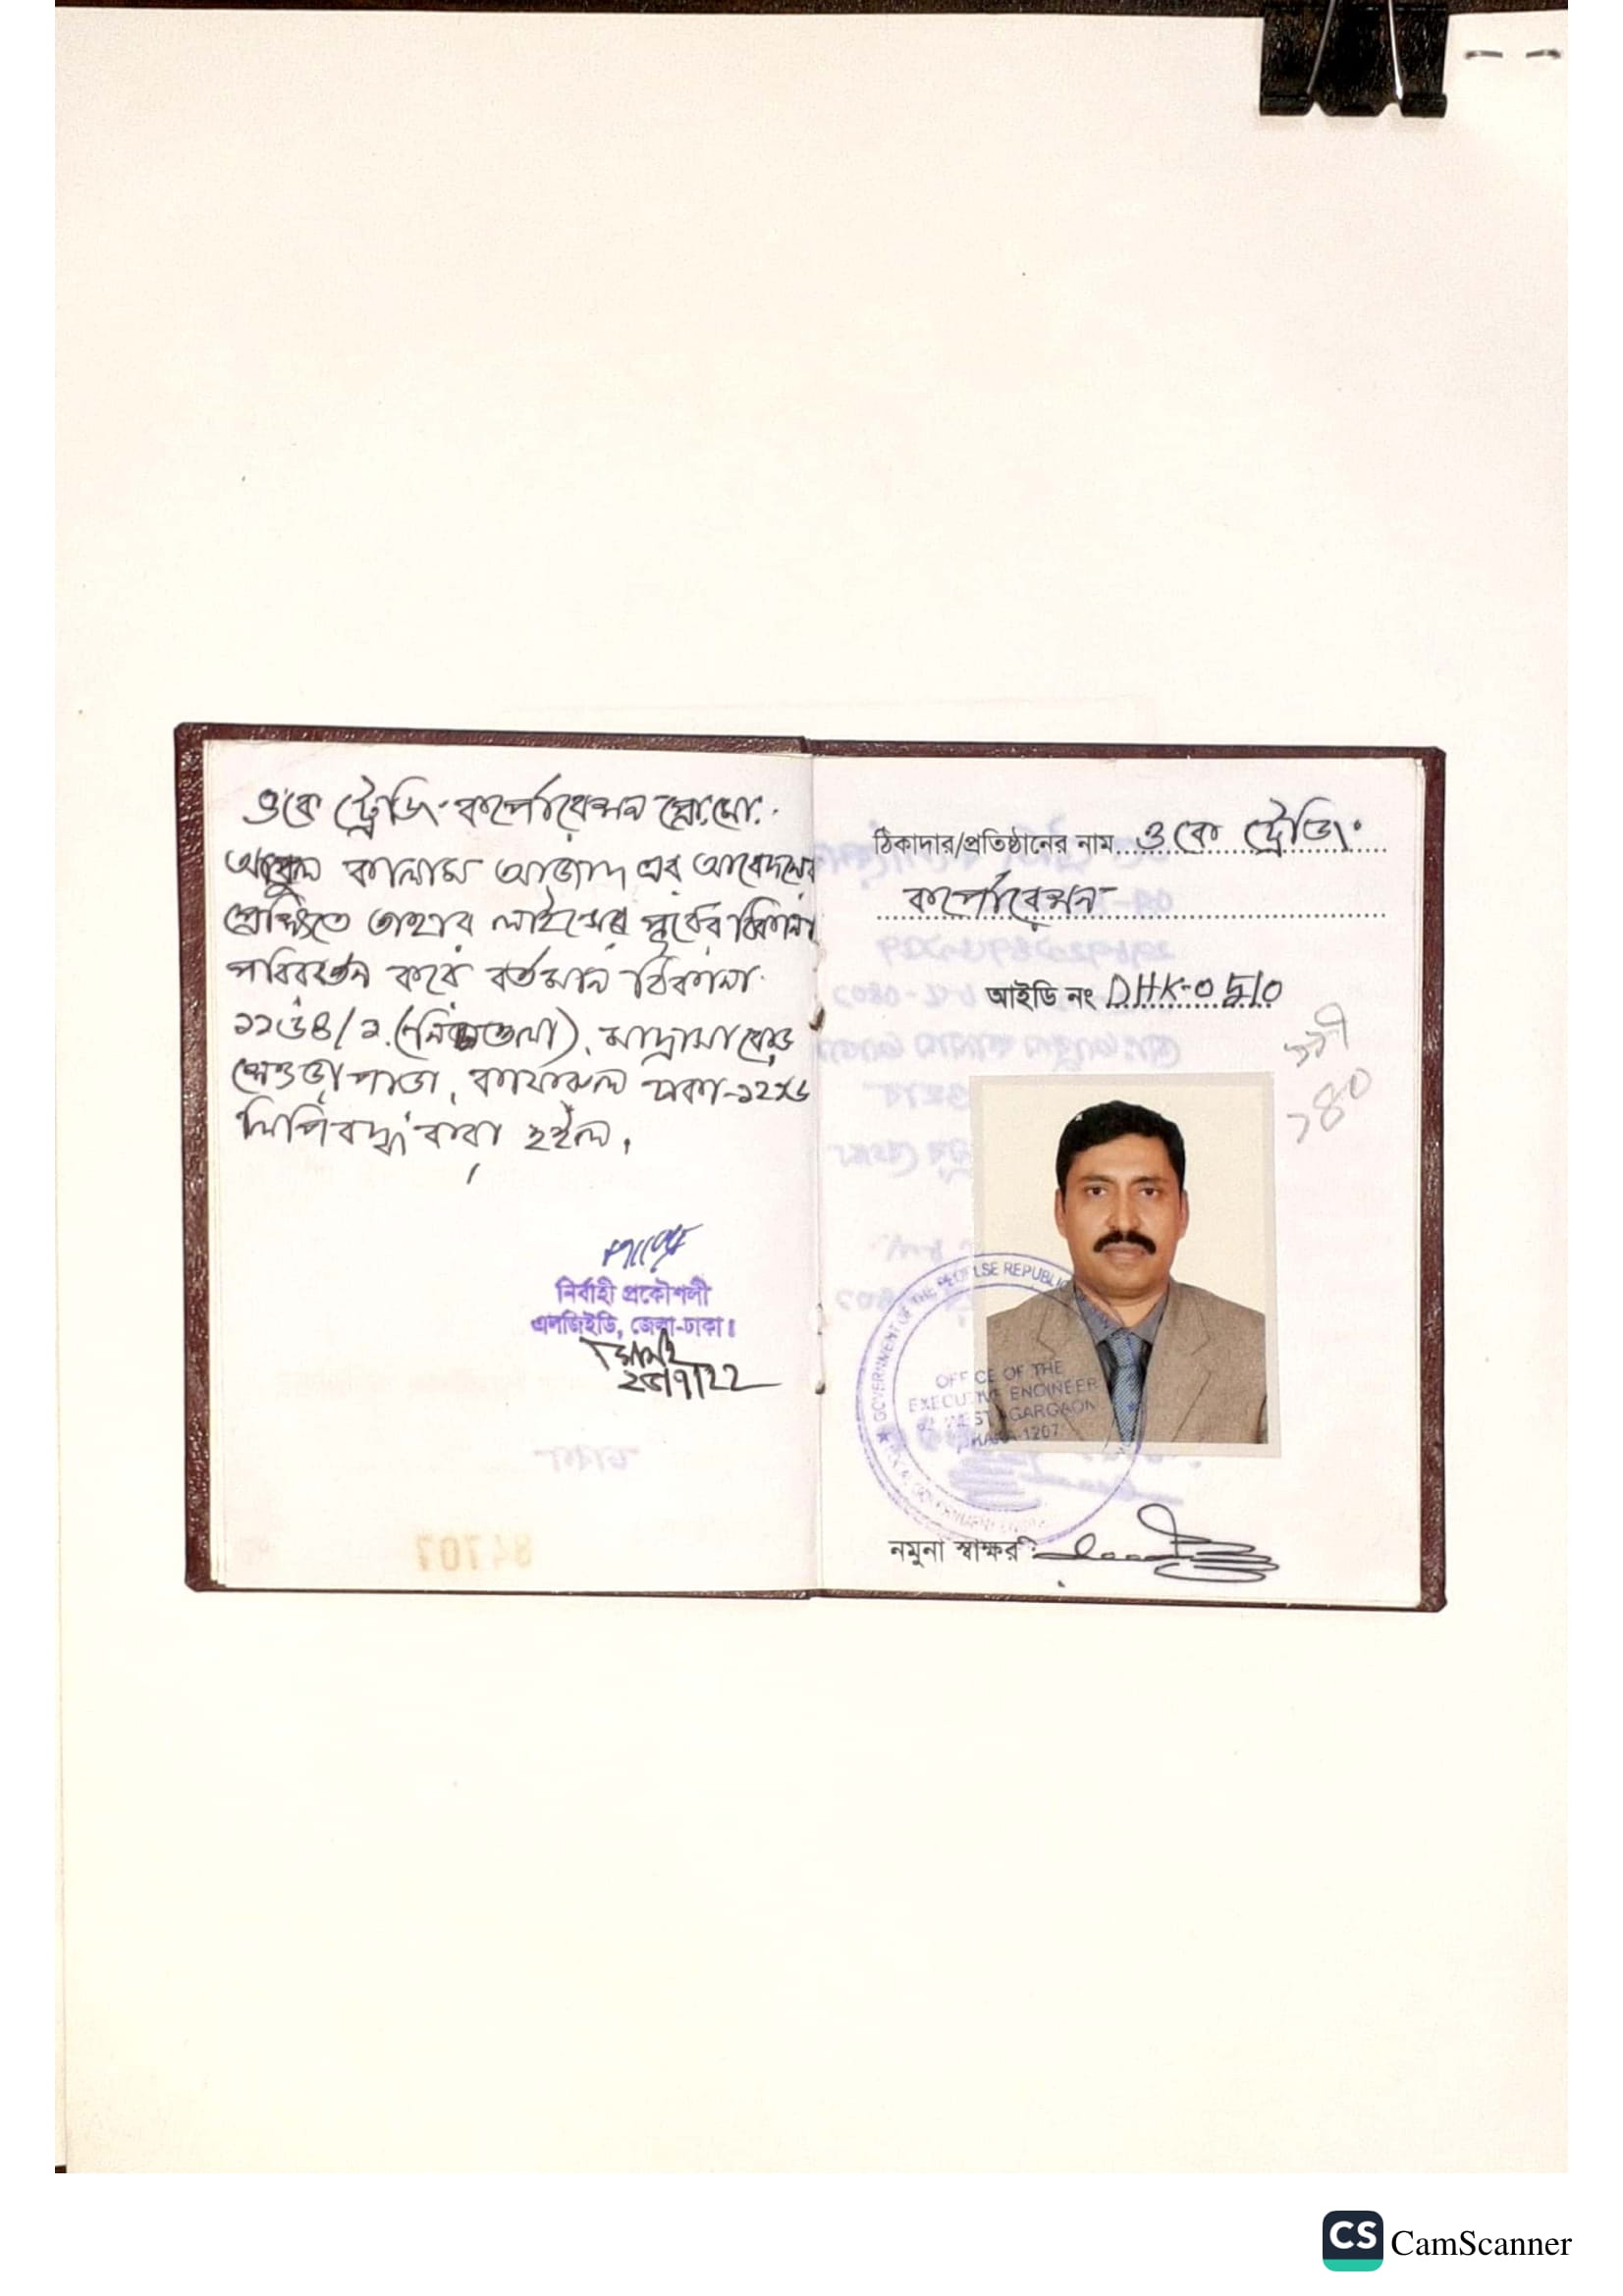 ওকে ট্রেডিং কর্পোরেশন প্রো.মো.
আবুল কালাম আজাদ এর আবেদনের
প্রেক্ষিতে তাহার লাইসেন্সের পূর্বের ঠিকানা
পরিবর্তন করে বর্তমান ঠিকানা
১২৩৪/২, (নিচতলা), মাদ্রাসা রোড
শেওড়াপাড়া, কাফরুল ঢাকা-১২১৬
লিপিবদ্ধ করা হইল।
নির্বাহী প্রকৌশলী
এলজিইডি, জেলা-ঢাকা।
ঠিকাদার/প্রতিষ্ঠানের নাম ওকে ট্রেডিং
কর্পোরেশন
আইডি নং DHK-0510
১৪০
GOVERNMENT OF THE PEOPLSE REPUBLIC
OFFICE OF THE
EXECUTIVE ENGINEER
WEST AGARGAON
DHAKA-1207
নমুনা স্বাক্ষর :
84707
CS CamScanner